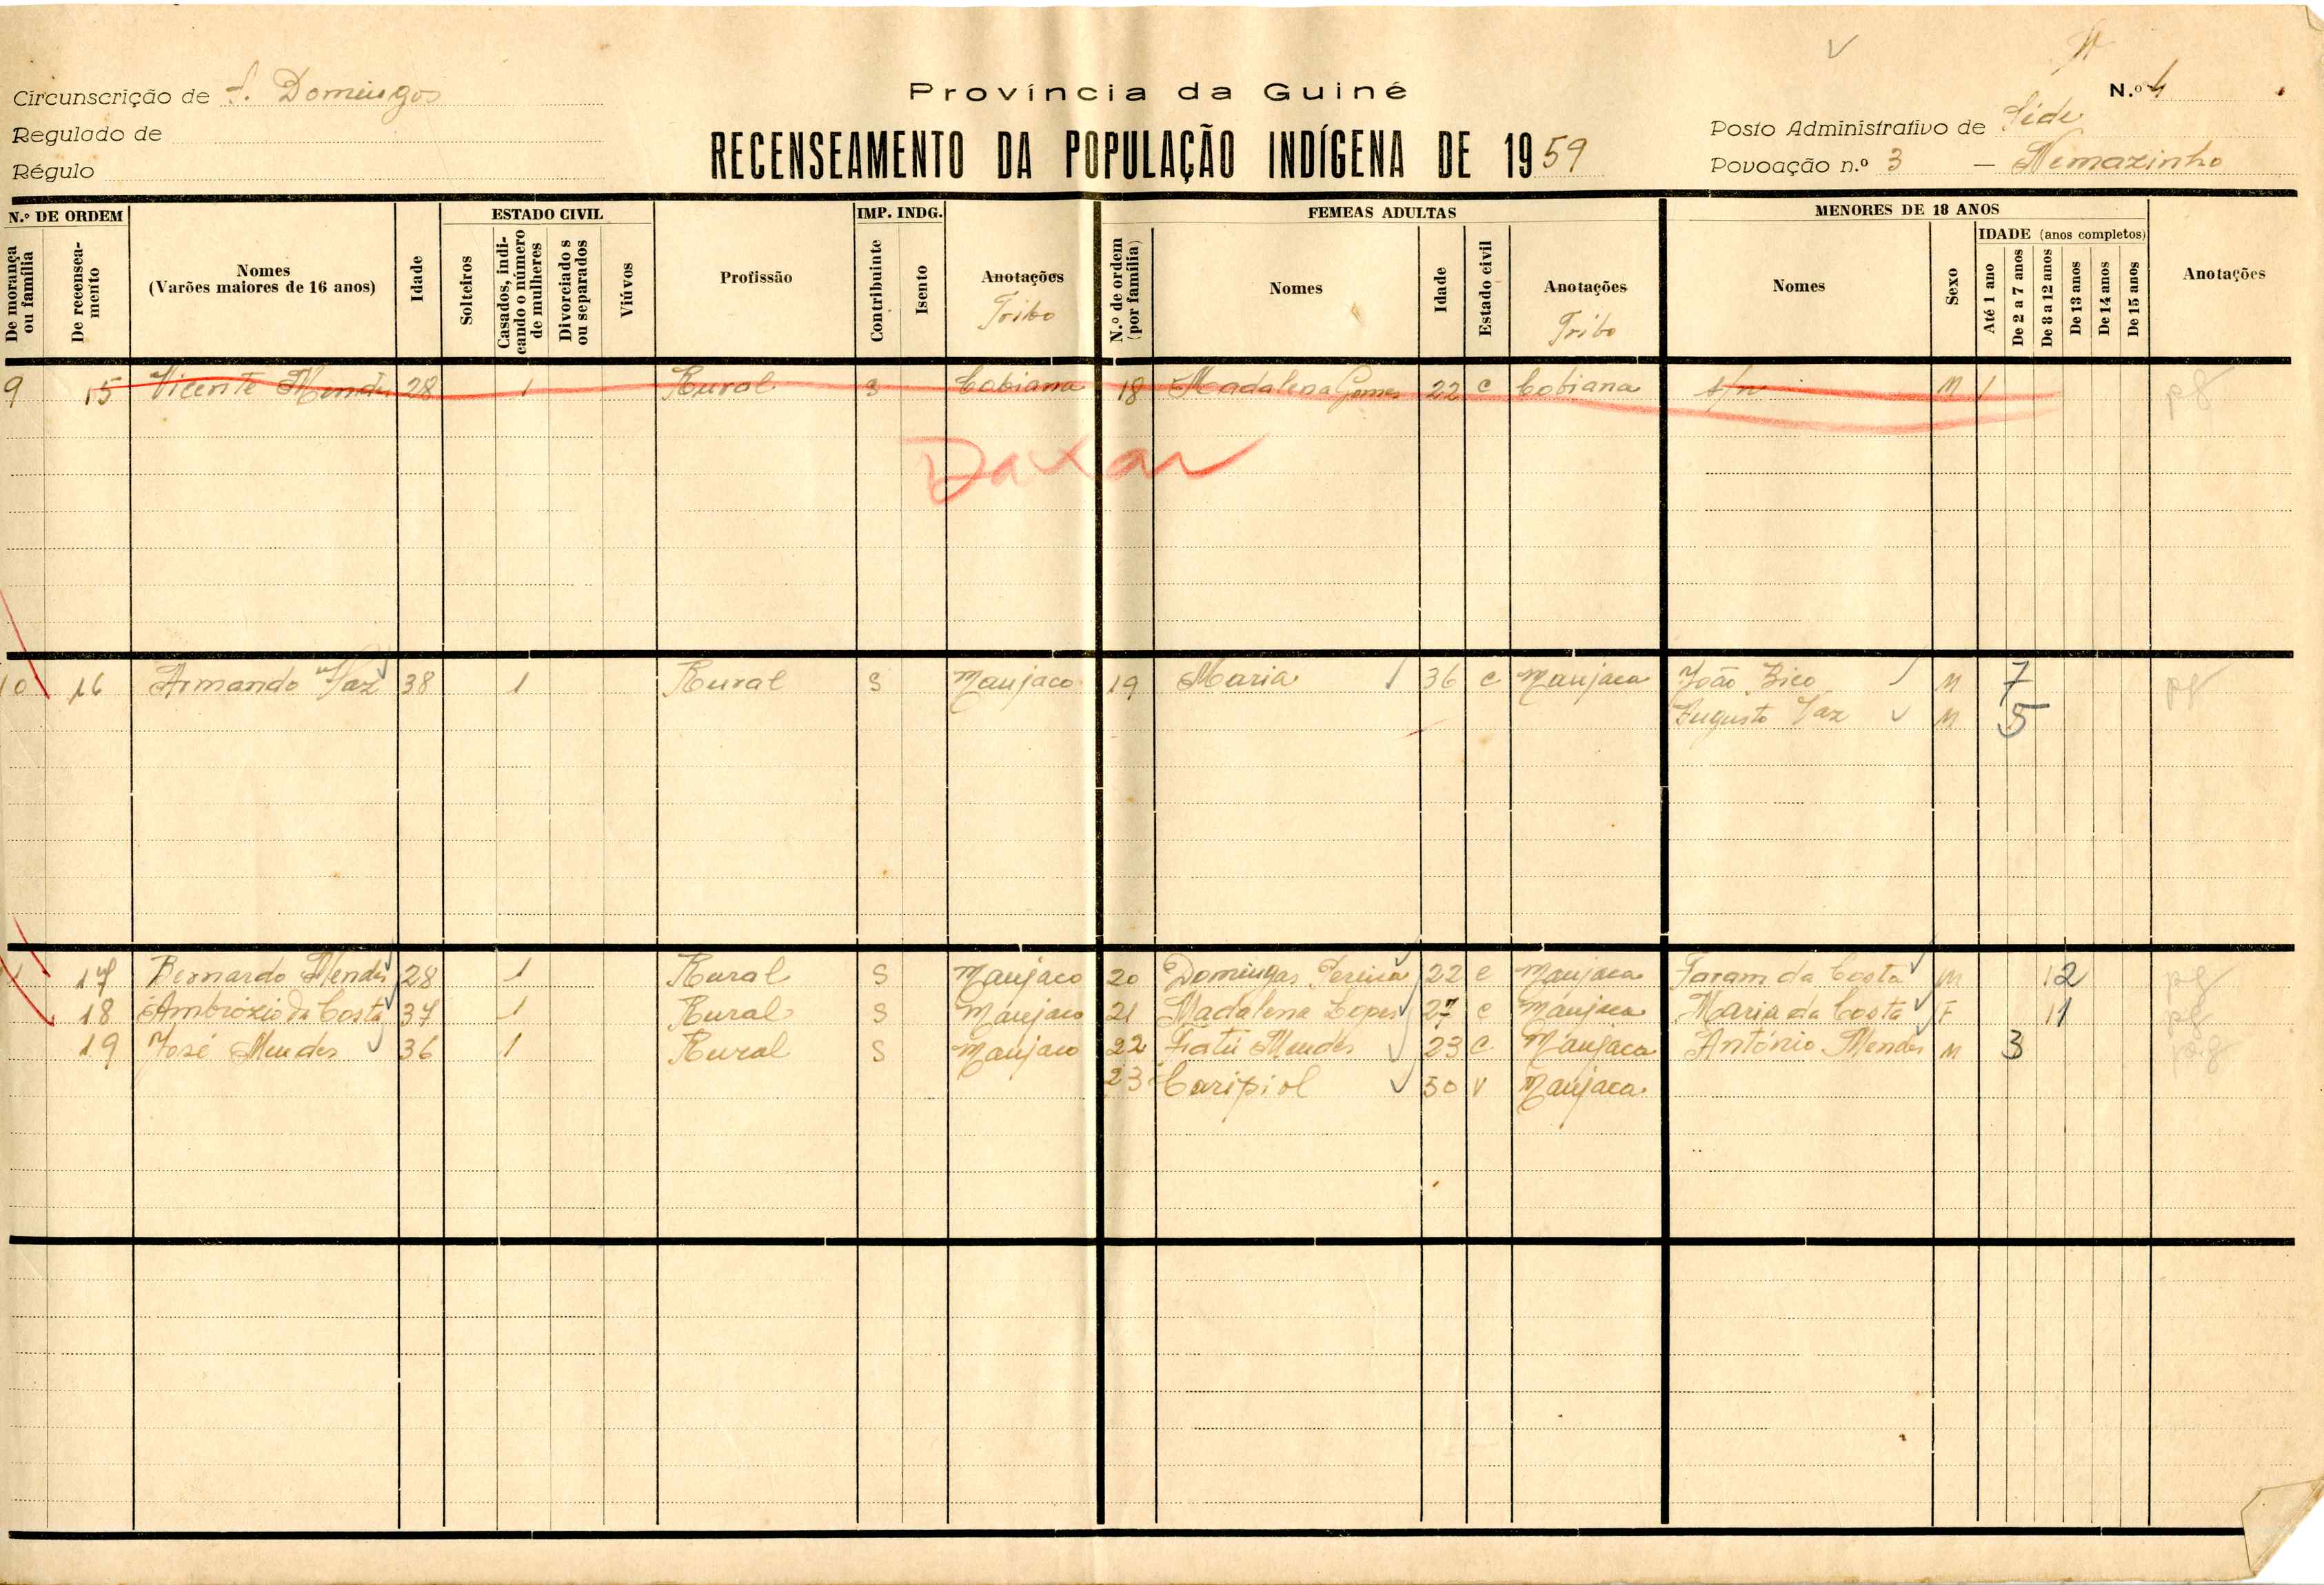 Província da Guiné
Circunscrição de S. Domingos
N.º 4
Regulado de
RECENSEAMENTO DA POPULAÇÃO INDÍGENA DE 1959
Posto Administrativo de Séde
Régulo
Povoação n.º 3 — Nemazinho
N.º DE ORDEM
De morança ou família
De recenseamento
Nomes
(Varões maiores de 16 anos)
Idade
ESTADO CIVIL
Solteiros
Casados, indicando o número de mulheres
Divorciados ou separados
Viúvos
Profissão
IMP. INDG.
Contribuinte
Isento
Anotações
Tribo
FEMEAS ADULTAS
N.º de ordem (por família)
Nomes
Idade
Estado civil
Anotações
Tribo
MENORES DE 18 ANOS
Nomes
Sexo
IDADE (anos completos)
Até 1 ano
De 2 a 7 anos
De 8 a 12 anos
De 13 anos
De 14 anos
De 15 anos
Anotações
9 15 Vicente Mendes 28 1 Rural S Cobiana 18 Madalena Gomes 22 C Cobiana s/n M 1 pg
Daxar
10 16 Armando Vaz 38 1 Rural S Manjaco 19 Maria 36 C Manjaca João Bico M 7 pg
Augusto Vaz M 5
11 17 Bernardo Mendes 28 1 Rural S Manjaco 20 Domingas Pereira 22 C Manjaca Faram da Costa M 12 pg
18 Ambrózio da Costa 37 1 Rural S Manjaco 21 Madalena Lopes 27 C Manjaca Maria da Costa F 11 pg
19 José Mendes 36 1 Rural S Manjaco 22 Fatú Mendes 23 C Manjaca António Mendes M 3 pg
23 Caripiol 50 V Manjaca